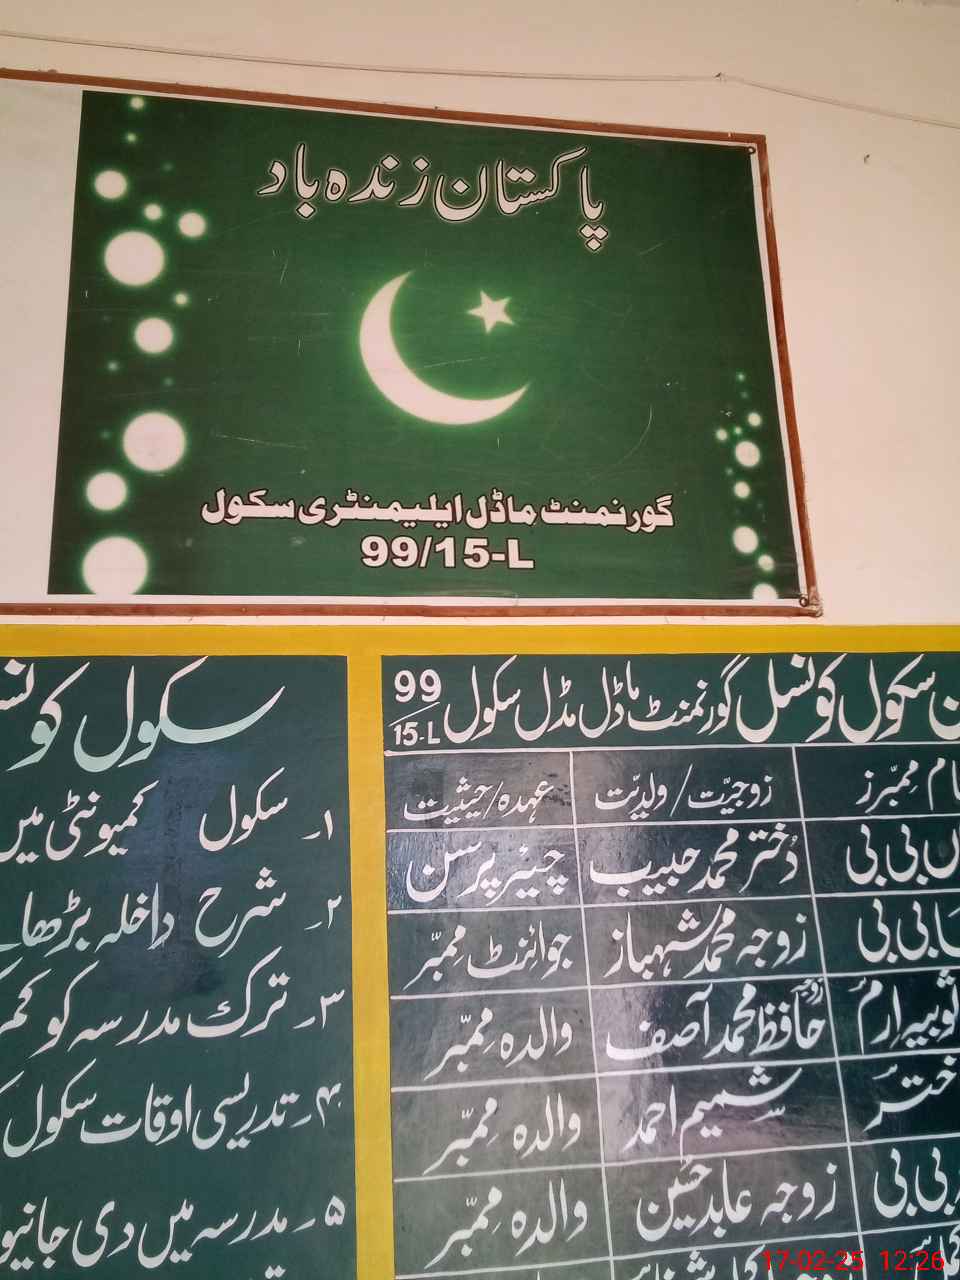 پاکستان زندہ باد
گورنمنٹ ماڈل ایلیمنٹری سکول
99/15-L
سکول کونس
۱۔ سکول کمیونٹی میں
۲۔ شرح داخلہ بڑھا
۳۔ ترک مدرسہ کو کم
۴۔ تدریسی اوقات سکول
۵۔ مدرسہ میں دی جانیو
ن سکول کونسل گورنمنٹ ماڈل مڈل سکول 99/15-L
ام ممبرز زوجیت/ولدیت عہدہ/حیثیت
ں بی بی دختر محمد حبیب چیئر پرسن
بی بی زوجہ محمد شہباز جوائنٹ ممبر
ثوبیہ ارم زوجہ حافظ محمد آصف والدہ ممبر
ختر شمیم احمد والدہ ممبر
بی بی زوجہ عابد حسین والدہ ممبر
17-02-25 12:26